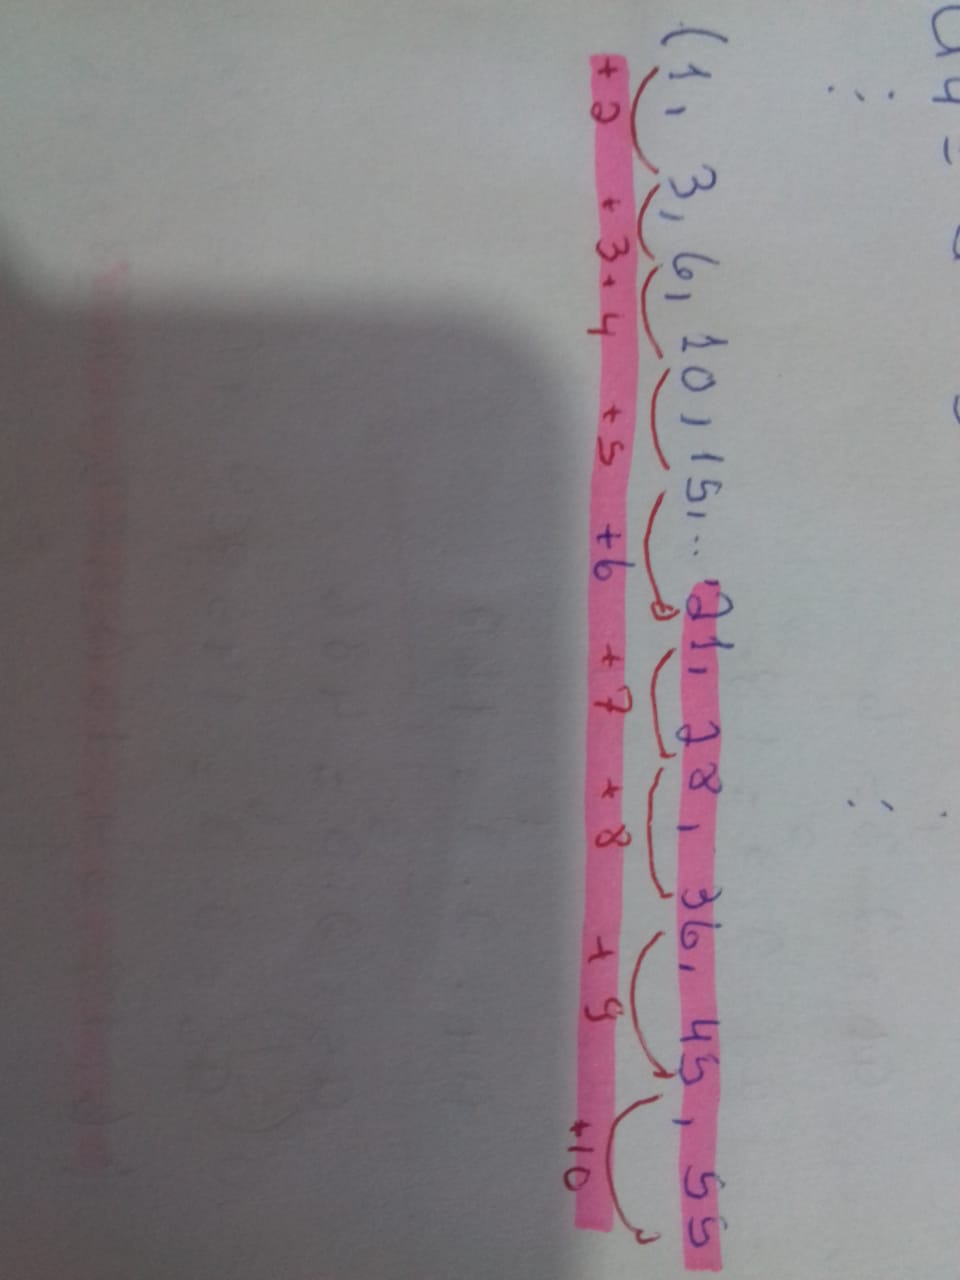 (1, 3, 6, 10, 15, .. 21, 28, 36, 45, 55
+2 +3 +4 +5 +6 +7 +8 +9 +10